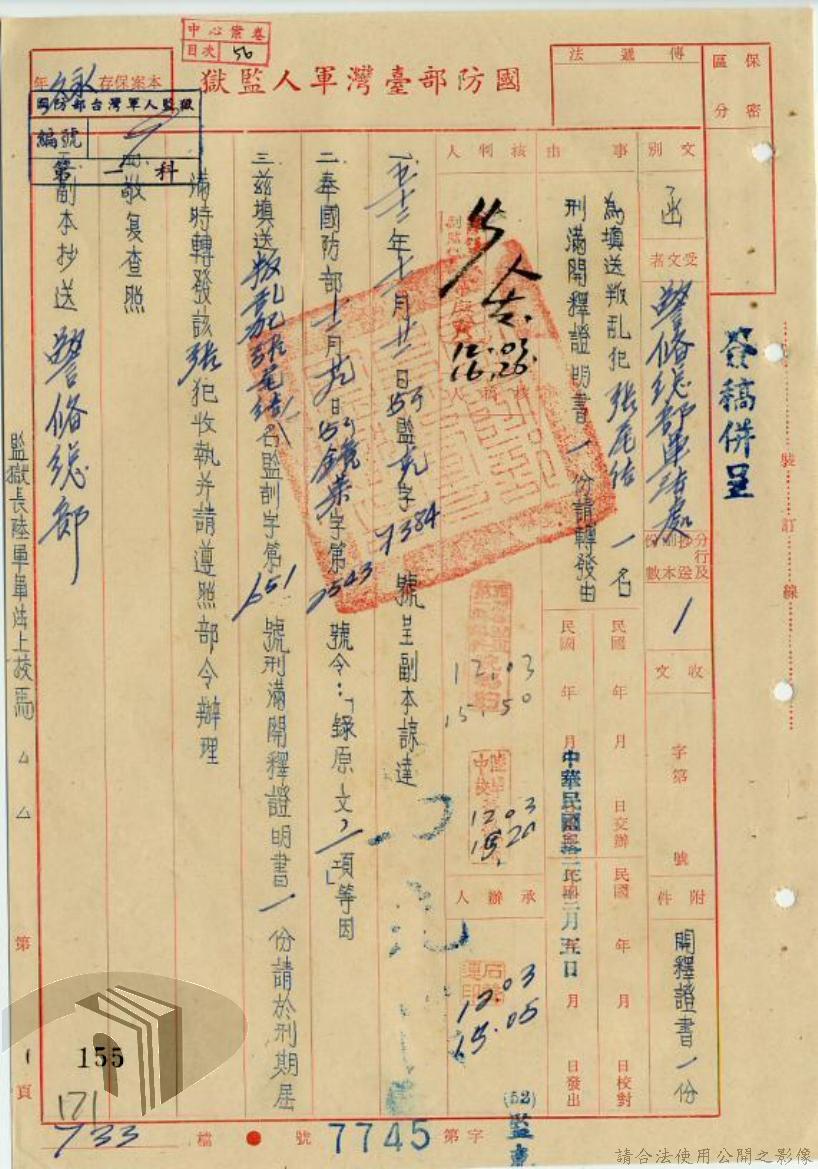 中心業卷
目次 56
國防部臺灣軍人監獄
本案保存 永 年
國防部台灣軍人監獄
編號
第一科
傳遞法
保密區分
發稿併呈
裝訂線
文別 函
受文者 警備總部軍法處
分行及抄副份送本數 1
收文 字第 號
附件 開釋證書一份
事由 為填送叛乱犯張尾結一名
刑滿開釋證明書一份請轉發由
民國 年 月 日交辦
民國 年 月 日校對
民國 年 月 日發出
中華民國 月 日
核判人
核稿人
承辦人
12.03
16.26.
12.03
15.50
12.03
15.20
12.03
15.05
年 月 日 監 字 7384 號呈副本諒達
二、奉國防部 月 日 字第 2543 號令：「錄原文」項等因
三、茲填送叛乱犯張尾結一名監剖字第 651 號刑滿開釋證明書一份請於刑期屆
滿時轉發該張犯收執并請遵照部令辦理
四、敬复查照
副本抄送警備總部
監獄長陸軍軍法上校馬△△
第 1 頁
155
171
733
檔號
(52)監 字第 7745 號
請合法使用公開之影像